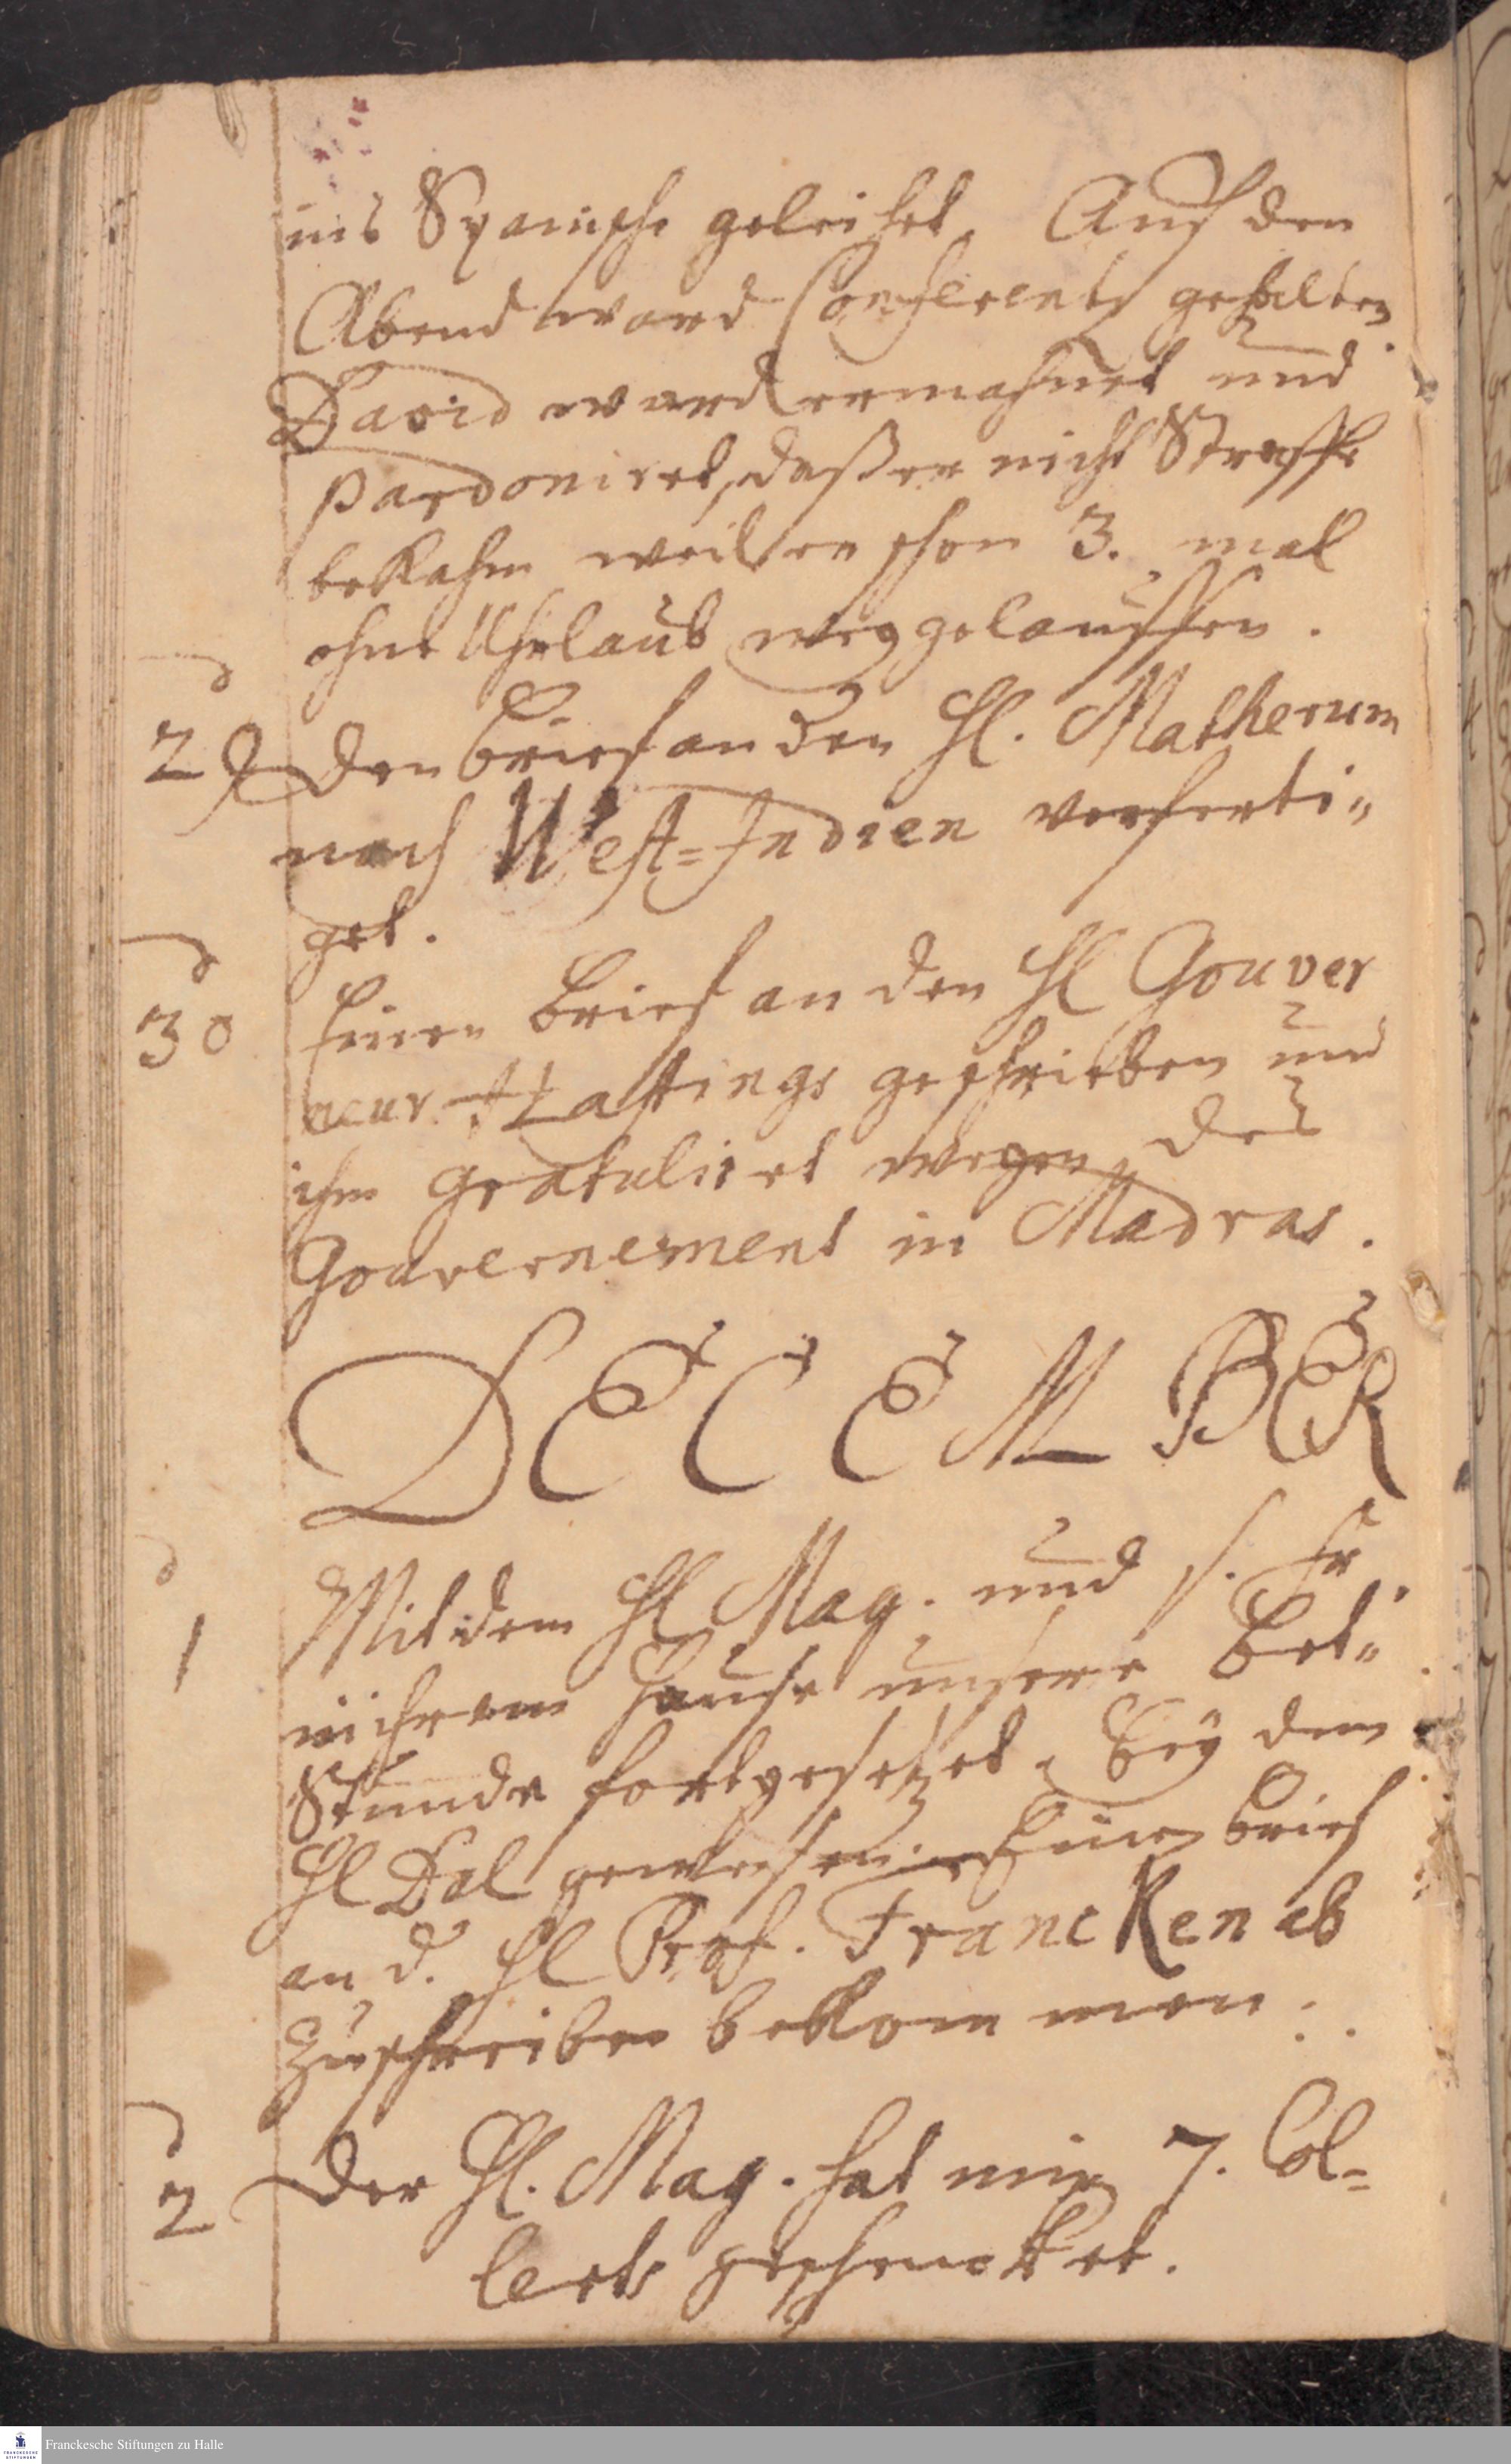 ins Spanische geleihet. Auf den
Abend ward Conferentz gehalten.
David ward ermahnet und
pardoniret, daß er nicht Straffe
bekahm weil er schon 3. mal
ohne Uhrlaub weggelauffen.
29 Den Brief an den Hl. Matherum
nach West-Indien verferti„
get.
30 Einen Brief an den Hl Gouver
neur Hastings geschrieben und
ihm gratuliret wegen des
Gouvernement in Madras.
DECEMBER
1 Mit dem Hl Mag. und s. Fr.
in ihrem Hause unsere Bet„
Stunde fortgesetzet. Bey dem
Hl Dal gewesen. Einen Brief
an d. Hl Prof. Francken ab
zuschreiben bekommen.
2 Der Hl. Mag. hat mir 7. Col=
lerts geschencket.
Franckesche Stiftungen zu Halle